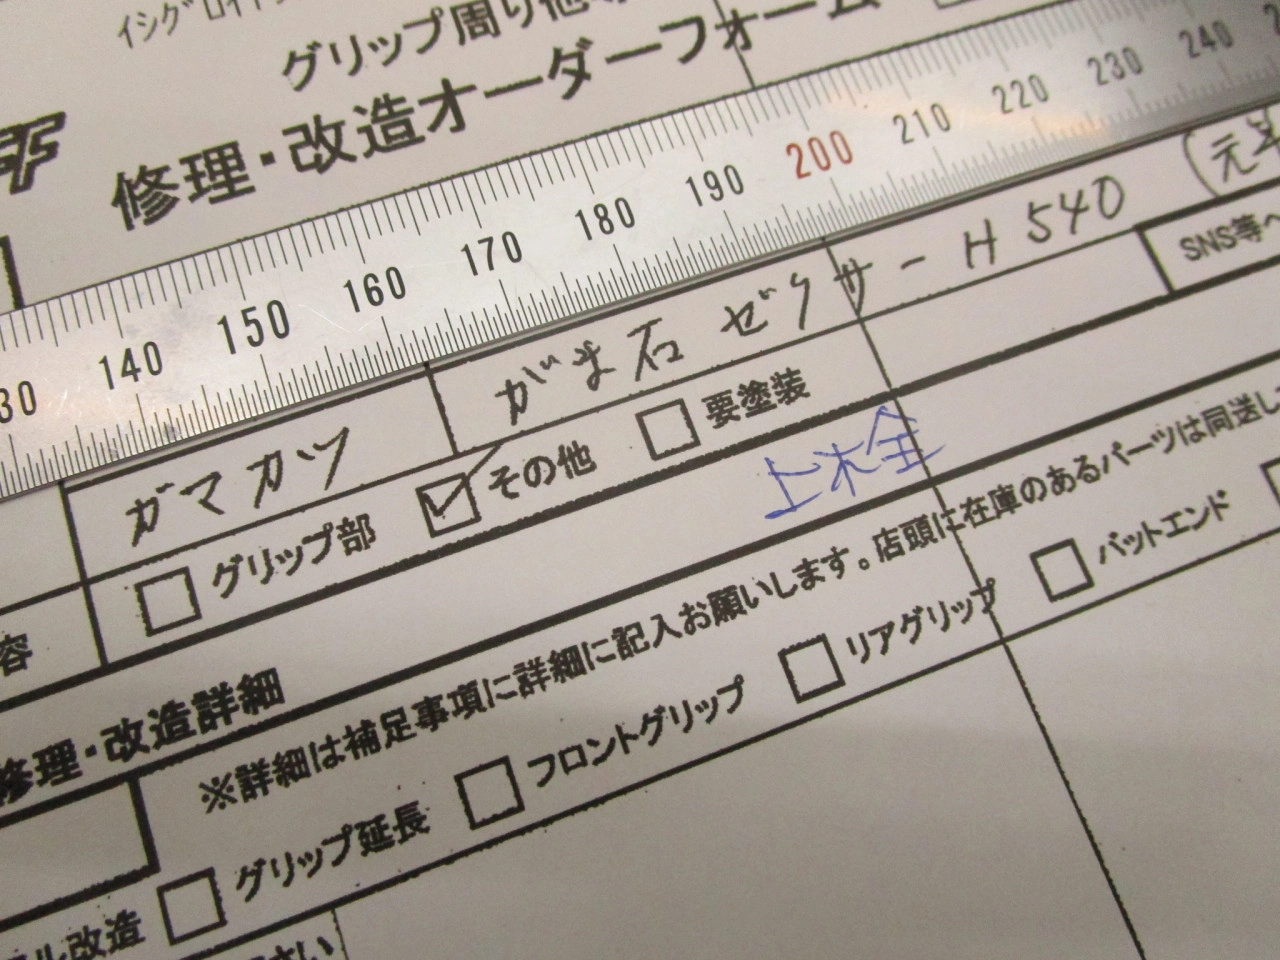 グリップ周り他
修理・改造オーダーフォーム
30 140 150 160 170 180 190 200 210 220 230 240
ガマカツ がま石 ゼクサー H 540 (元
SNS等へ
グリップ部 その他 要塗装
上木全
容
修理・改造詳細
※詳細は補足事項に詳細に記入お願いします。店頭に在庫のあるパーツは同送し
グリップ延長 フロントグリップ リアグリップ バットエンド
ル改造
さい